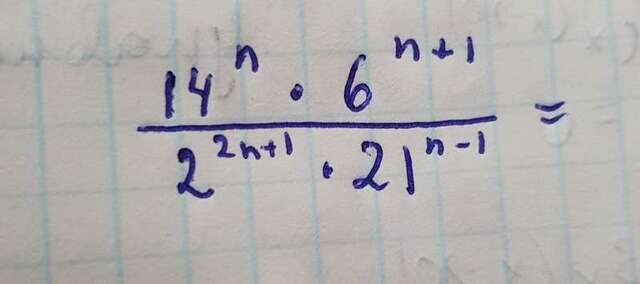 14^n · 6^{n+1}
2^{2n+1} · 21^{n-1} =